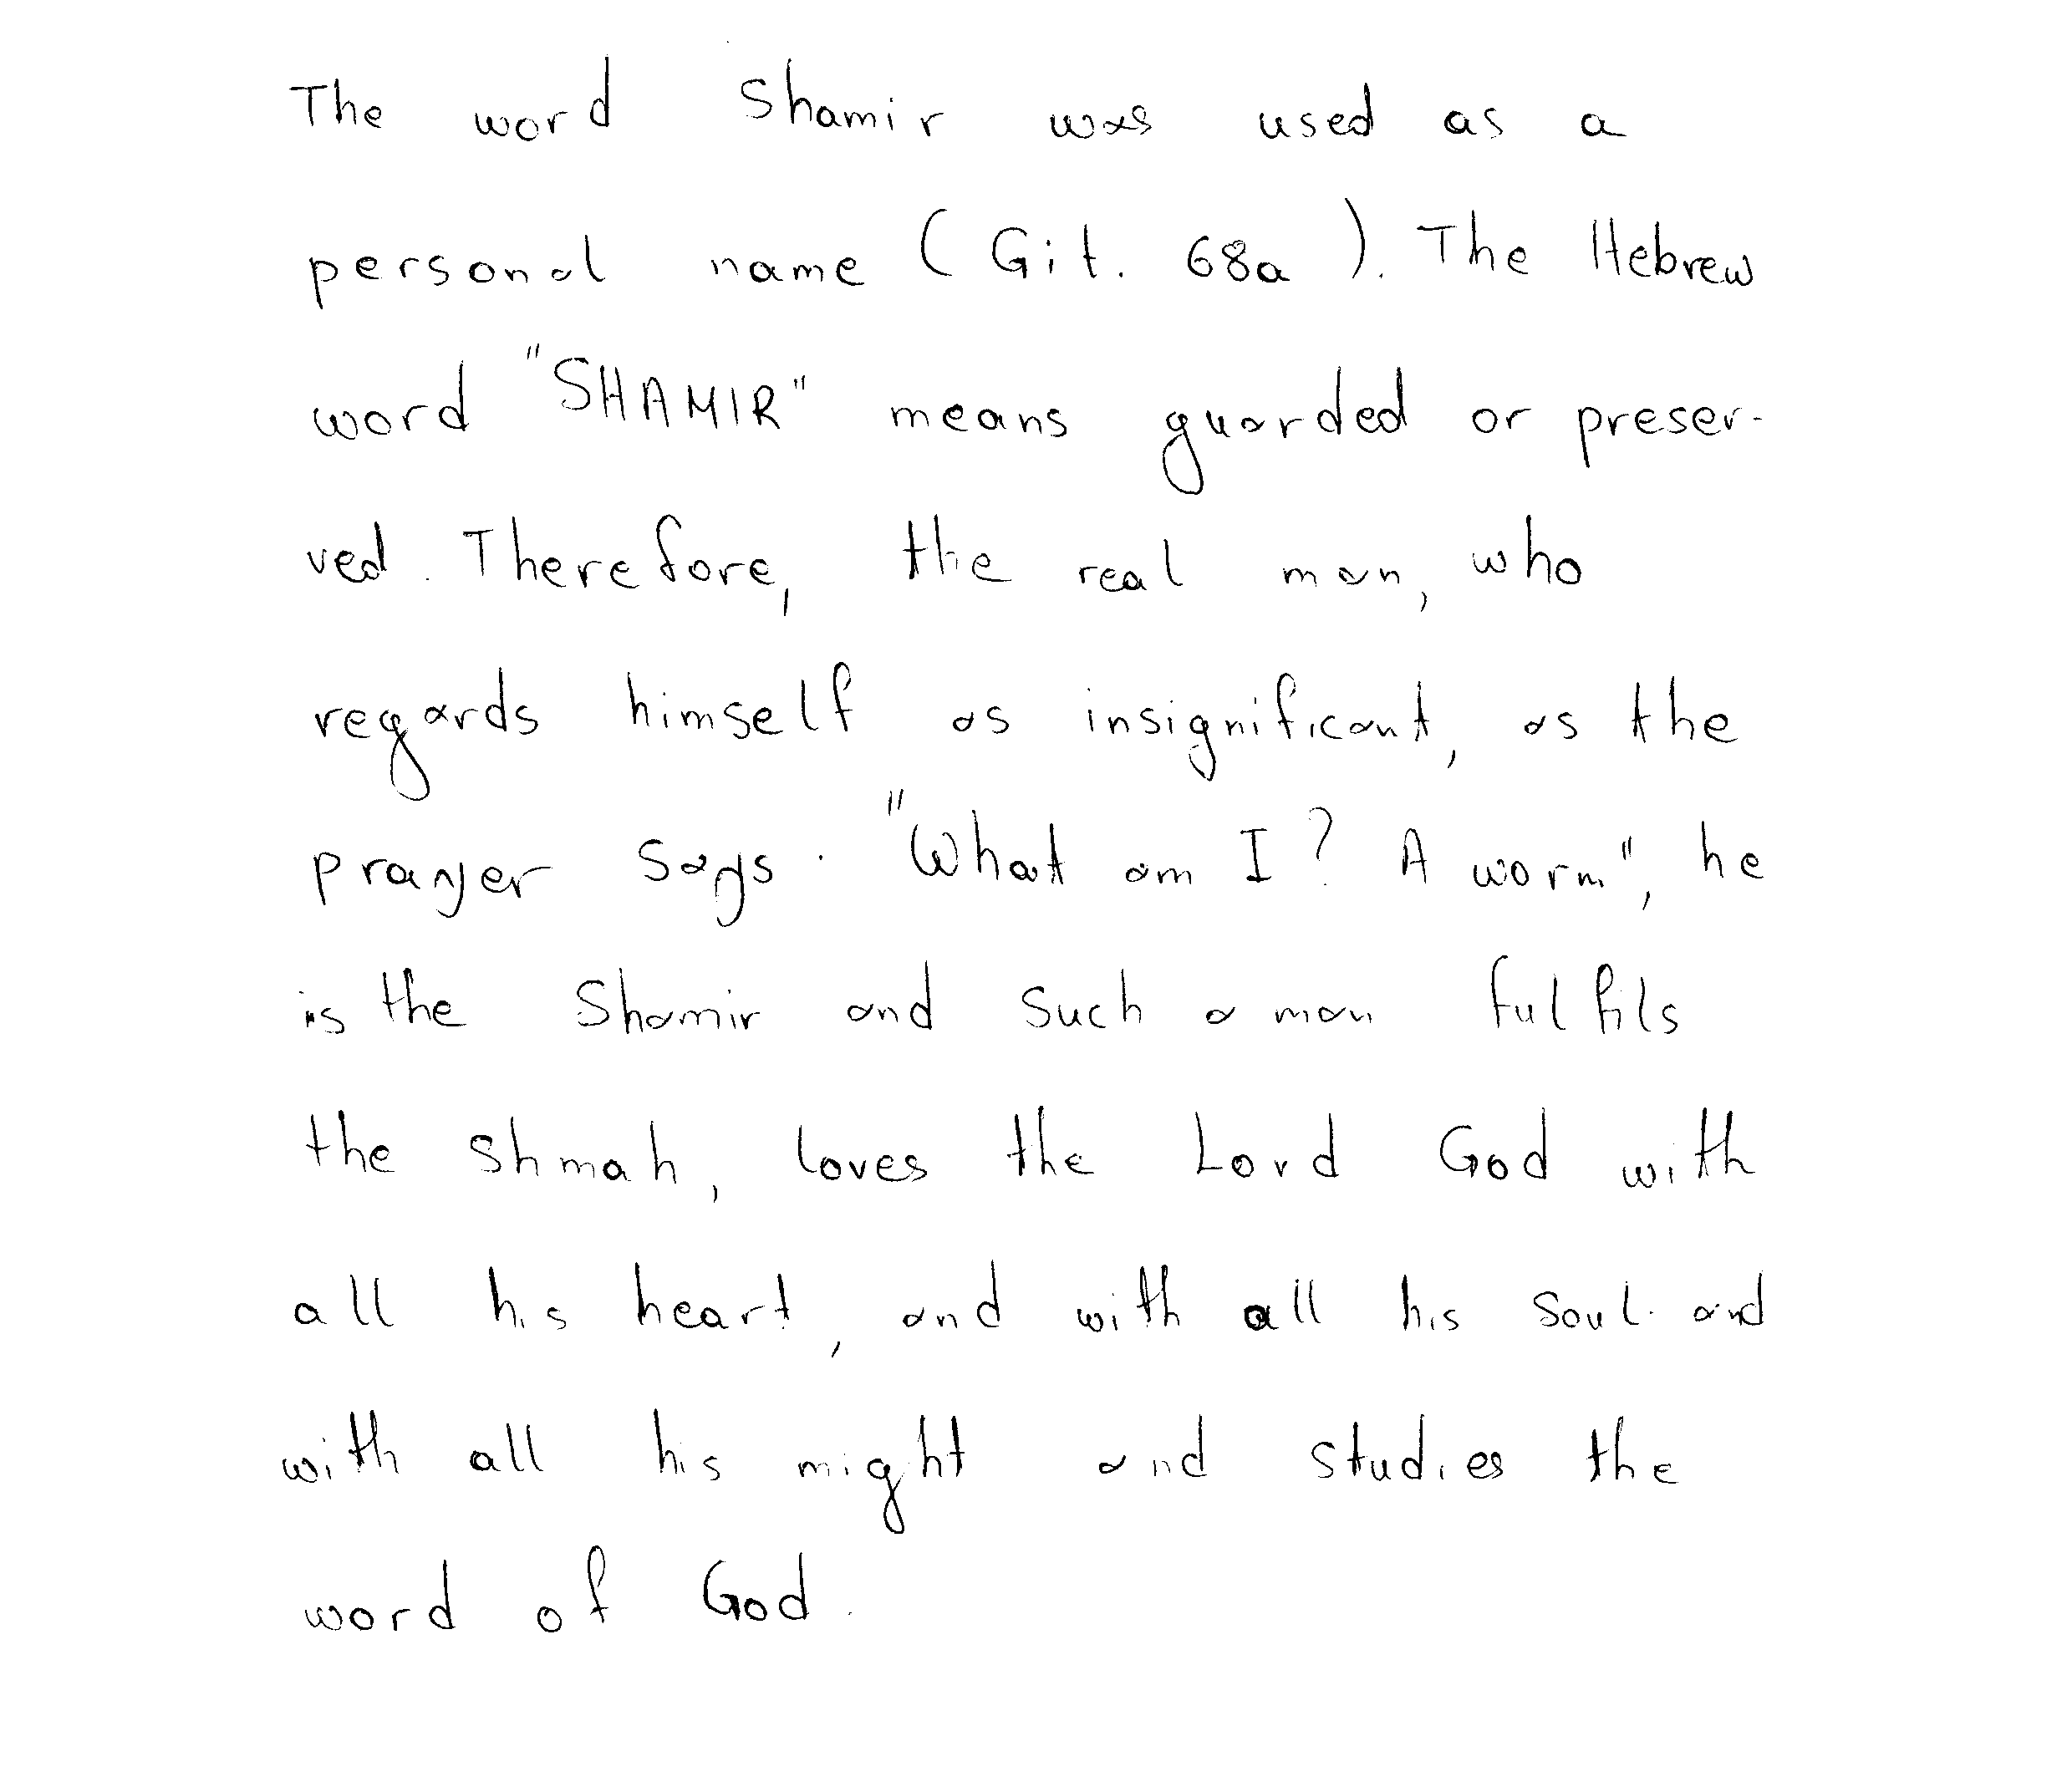 The word Shamir was used as a
personal name (Git. 68a). The Hebrew
word "SHAMIR" means guarded or preser-
ved. Therefore, the real man, who
regards himself as insignificant, as the
prayer says. "What am I? A worm", he
is the Shamir and such a man fulfils
the Shmah, loves the Lord God with
all his heart, and with all his soul and
with all his might and studies the
word of God.